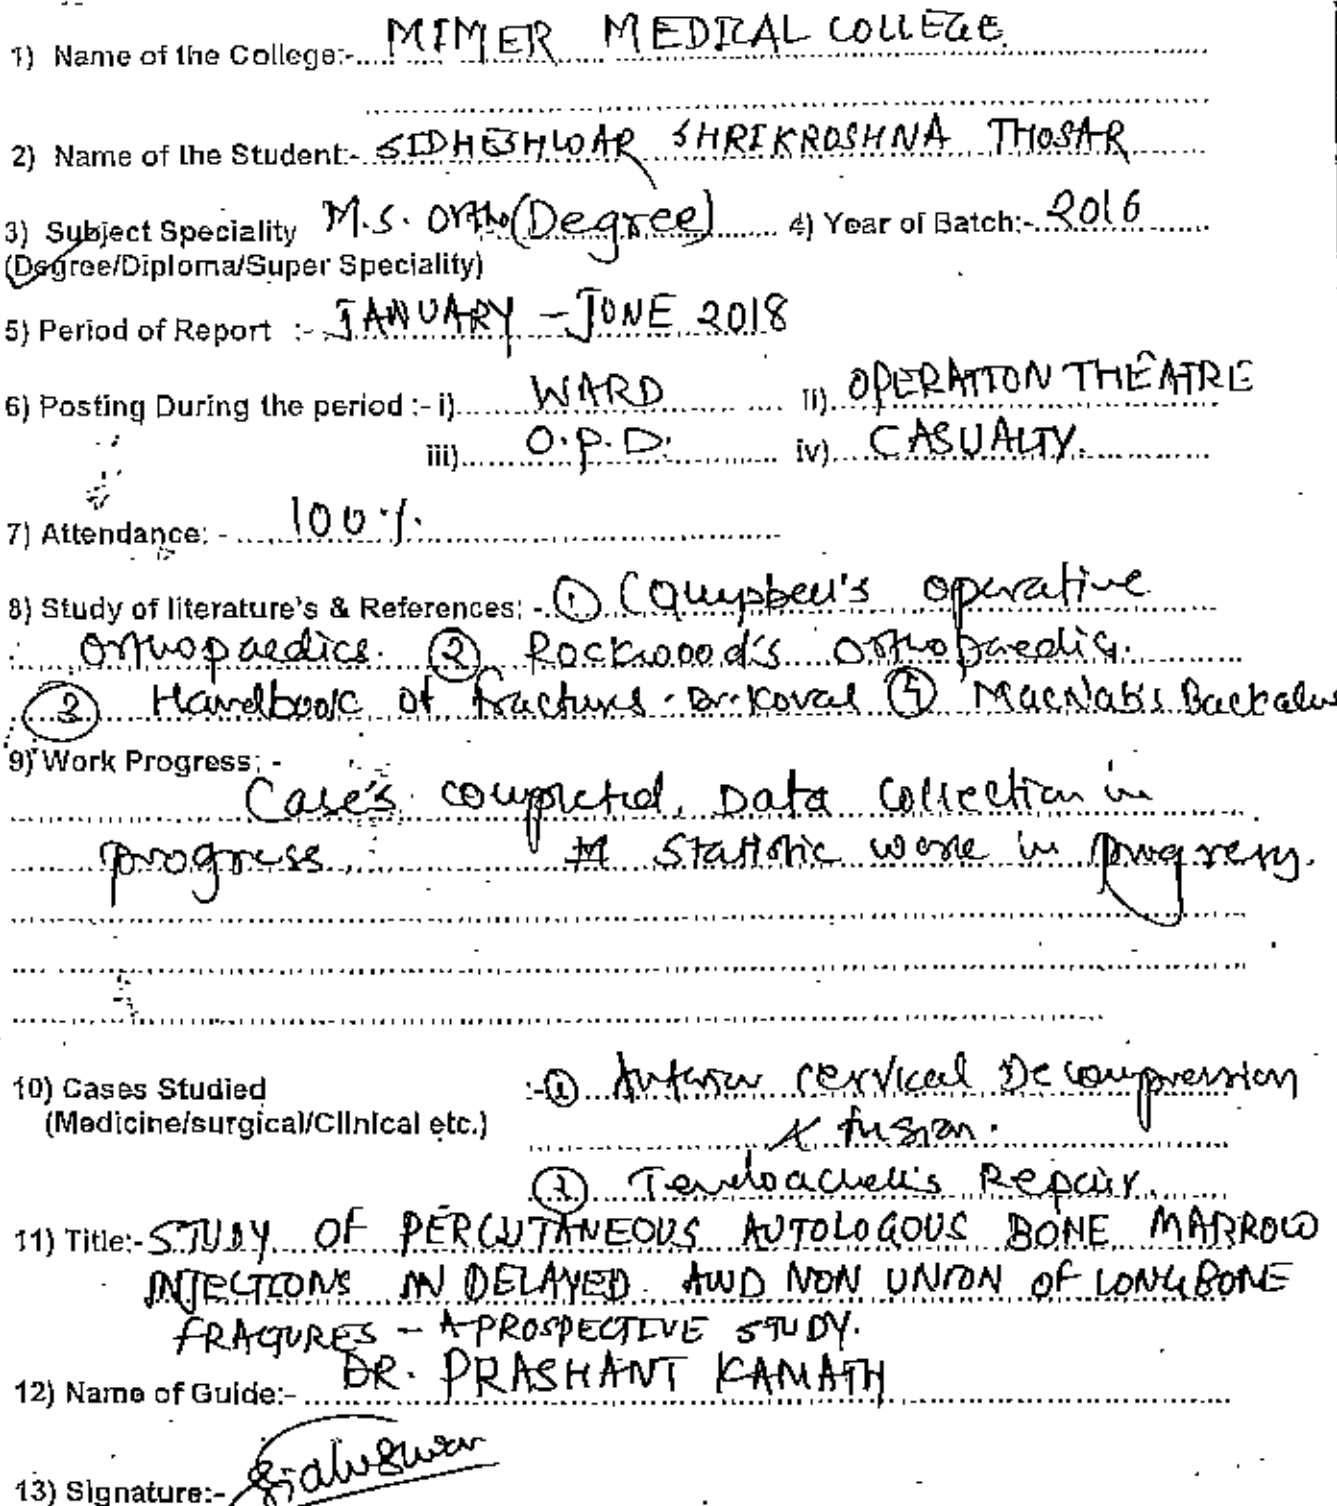 1) Name of the College:- MIMER MEDICAL COLLEGE
2) Name of the Student:- SIDHESHWAR SHRIKRISHNA THOSAR
3) Subject Speciality M.S. Ortho (Degree) 4) Year of Batch:- 2016
(Degree/Diploma/Super Speciality)
5) Period of Report :- JANUARY - JUNE 2018
6) Posting During the period :- i) WARD ii) OPERATION THEATRE
iii) O.P.D. iv) CASUALTY.
7) Attendance: - 100%.
8) Study of literature's & References: - ① Campbell's operative
orthopaedics. ② Rockwood's orthopaedics.
③ Handbook of fractures - Dr. Koval ④ MacNab's Backache
9) Work Progress: -
Case's completed, Data collection in
progress, Statistic work in progress.
10) Cases Studied :- ① Anterior cervical Decompression
(Medicine/surgical/Clinical etc.) & fusion.
② Tendoachell's Repair.
11) Title:- STUDY OF PERCUTANEOUS AUTOLOGOUS BONE MARROW
INJECTIONS IN DELAYED AND NON UNION OF LONG BONE
FRACTURES - A PROSPECTIVE STUDY.
12) Name of Guide:- DR. PRASHANT KAMATH
13) Signature:-